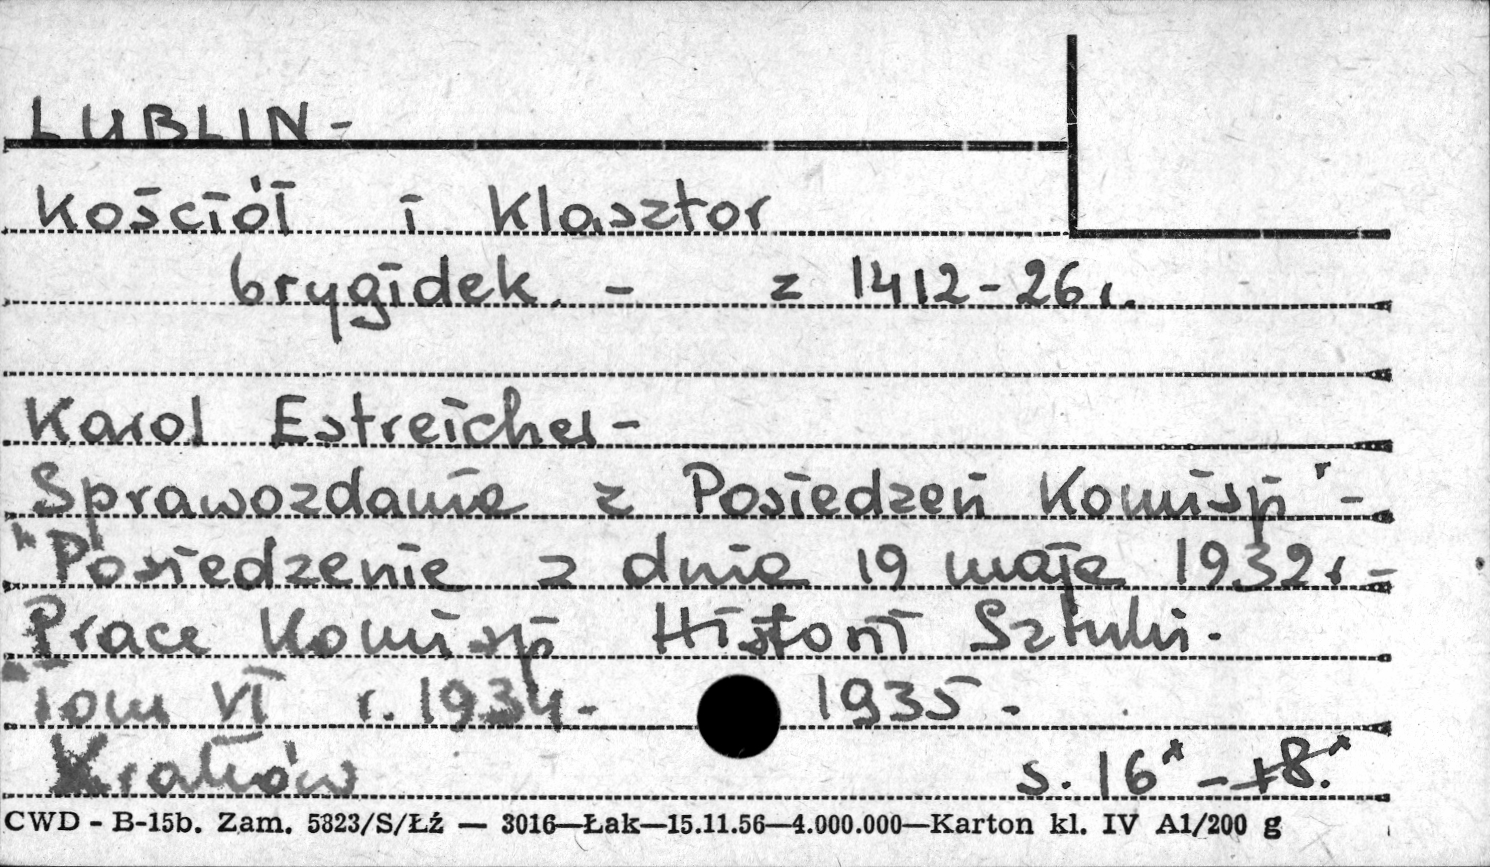 LUBLIN-
Kościół i Klasztor
brygidek. - z 1412-26 r.
Karol Estreicher-
Sprawozdanie z Posiedzeń Komisji -
"Posiedzenie z dnia 19 maja 1932 r -
Prace Komisji Historii Sztuki.
Tom VI r. 1934- 1935 -
Kraków s. 16* - 18.*
CWD - B-15b. Zam. 5823/S/Łź — 3016—Łak—15.11.56—4.000.000—Karton kl. IV A1/200 g